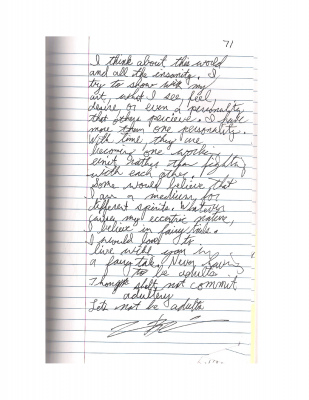 71
I think about this world
and all the insanity. I
try to show with my
art, what I see, feel,
desire or even a personality
that others percieve. I have
more than one personality.
With time, they are
becoming "one" working
unit rather than fighting
with each other.
Some would believe that
I am a medium for
different spirits. Whatever
causes my eccentric nature,
I believe in fairy tales.
I would love to
live with you in
a fairytale. Never having
to be adults.
Though shalt not commit
adultery
Lets not be adults